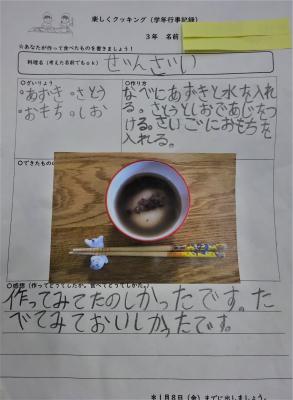 楽しくクッキング（学年行事記録）
3年 名前
☆あなたが作って食べたものを書きましょう！
料理名（考えた名前でもok） ぜんざい
○ざいりょう
・あずき ・さとう
・おもち ・しお
○作り方
なべにあずきと水を入れ
る。さとうとしおであじをつ
ける。さいごにおもちを
入れる。
○できたもの
○感想（作ってどうでしたか。食べてどうでしたか。）
作ってみてたのしかったです。た
べてみておいしかったです。
＊1月8日（金）までに出しましょう。